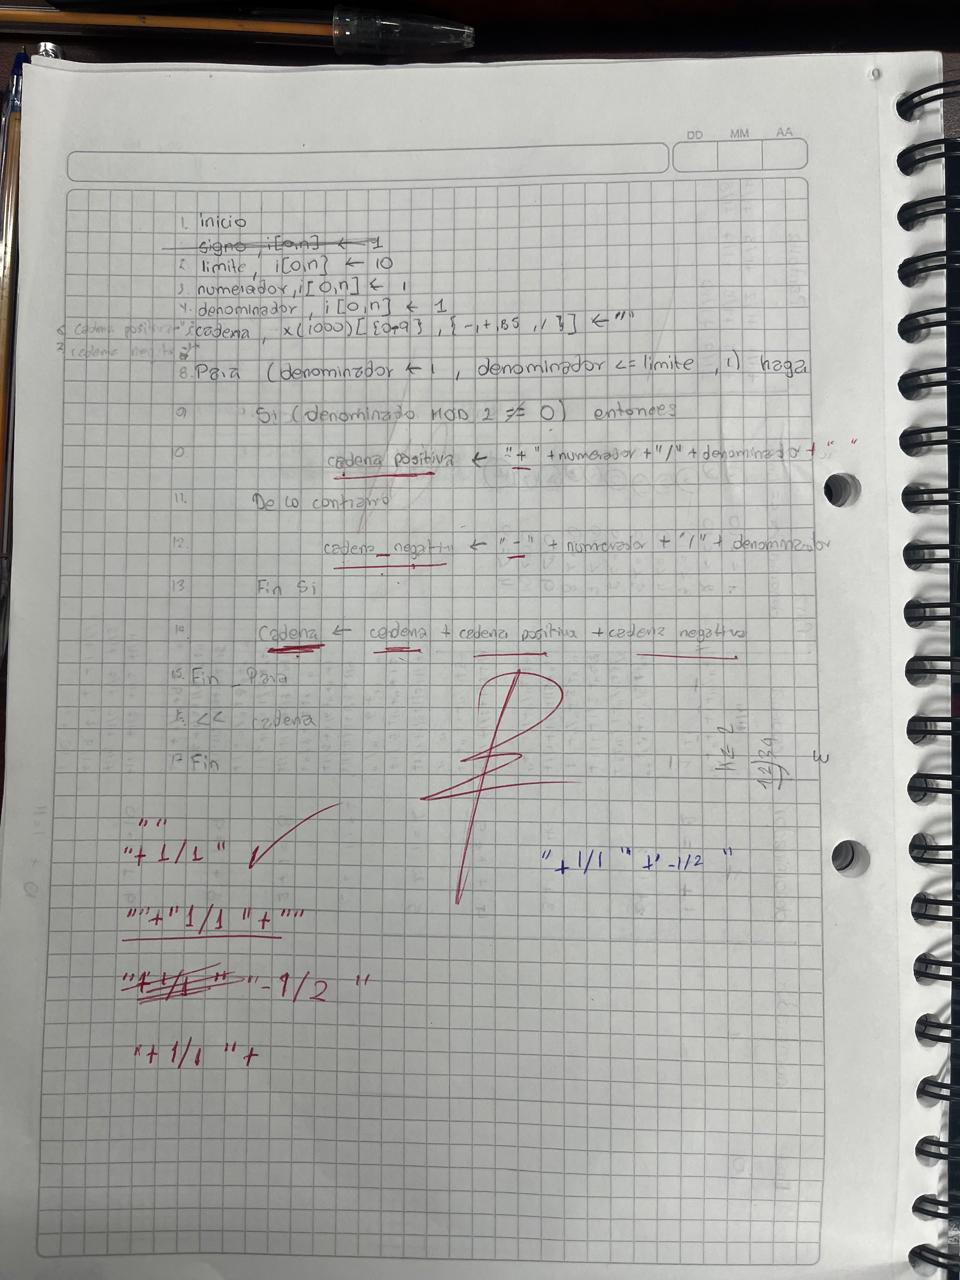 DD MM AA
1. inicio
signo, i[0,n] ← 1
2. limite, i[0,n] ← 10
3. numerador, i[0,n] ← 1
4. denominador, i[0,n] ← 1
cadena positiva
cadena, x(1000)[{0,9}, { -, +, /}] ← ""
8. Para (denominador ← 1, denominador <= limite, 1) haga
9 Si (denominado MOD 2 ≠ 0) entonces
10 cadena positiva ← "+" + numerador + "/" + denominador + " "
11. De lo contrario
12. cadena_negativ ← "-" + numerador + "/" + denominador
13 Fin Si
14 Cadena ← cadena + cadena positiva + cadena negativa
15. Fin_Para
<< cadena
17 Fin
K≤2
12/34
""
"+ 1/1 "
"+ 1/1 " + -1/2 "
"" + " 1/1 " + ""
"+ 1/1 " "- 1/2 "
"+ 1/1 " +